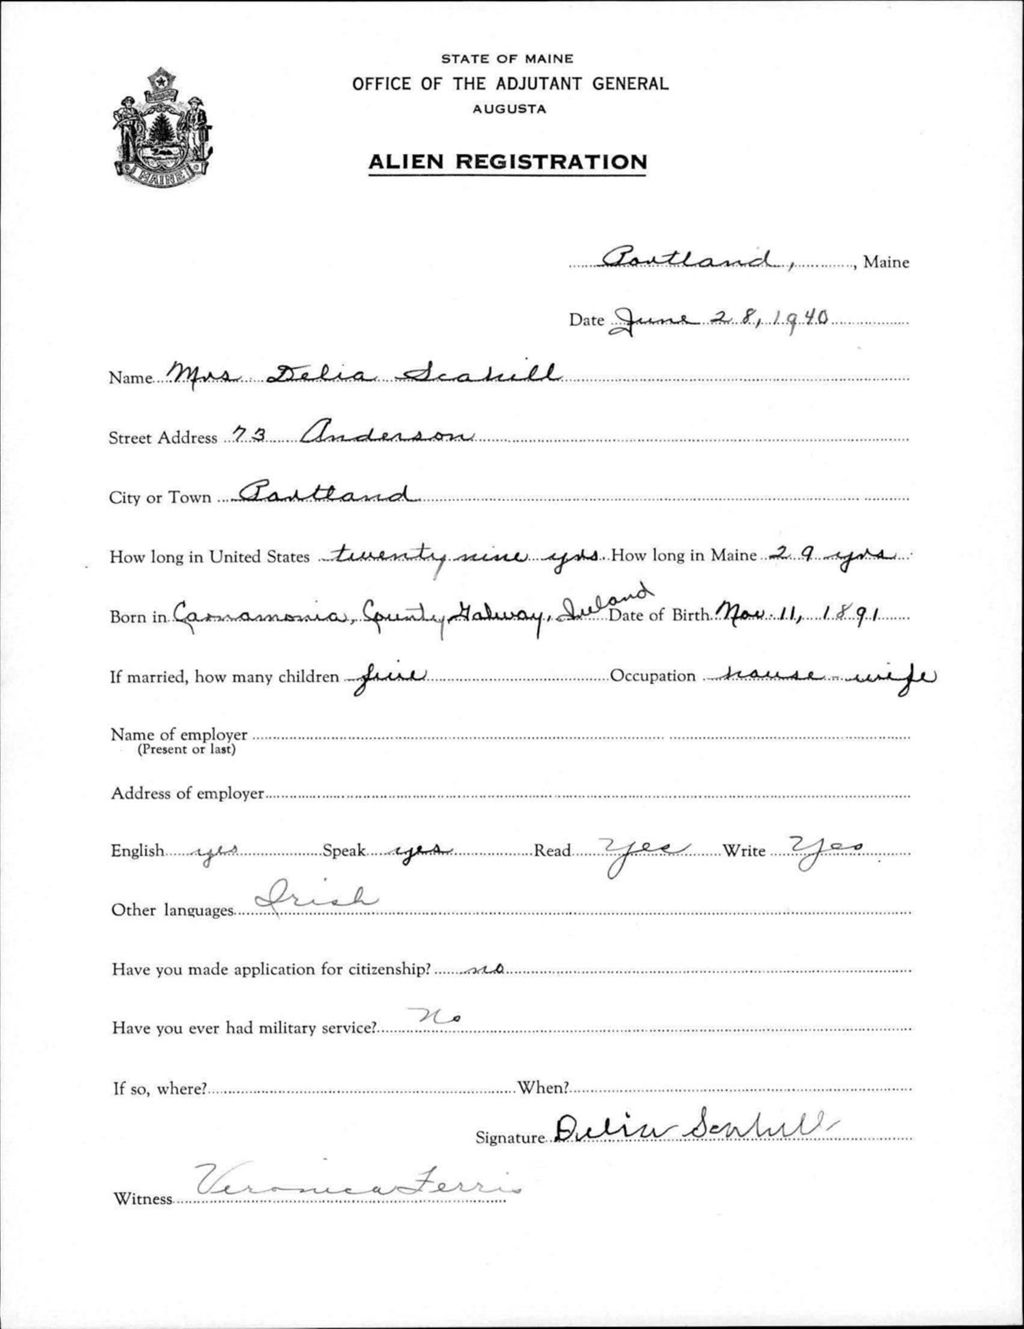 STATE OF MAINE
OFFICE OF THE ADJUTANT GENERAL
AUGUSTA
ALIEN REGISTRATION
MAINE
Portland, Maine
Date June 28, 1940
Name Mrs Delia Scahill
Street Address 73 Anderson
City or Town Portland
How long in United States twenty nine yrs How long in Maine 29 yrs
Born in Carnamonia, County Galway, Ireland Date of Birth Nov. 11, 1891
If married, how many children five Occupation house-wife
Name of employer
(Present or last)
Address of employer
English yes Speak yes Read Yes Write Yes
Other languages Irish
Have you made application for citizenship? no
Have you ever had military service? No
If so, where? When?
Signature Delia Scahill
Witness Veronica Ferris